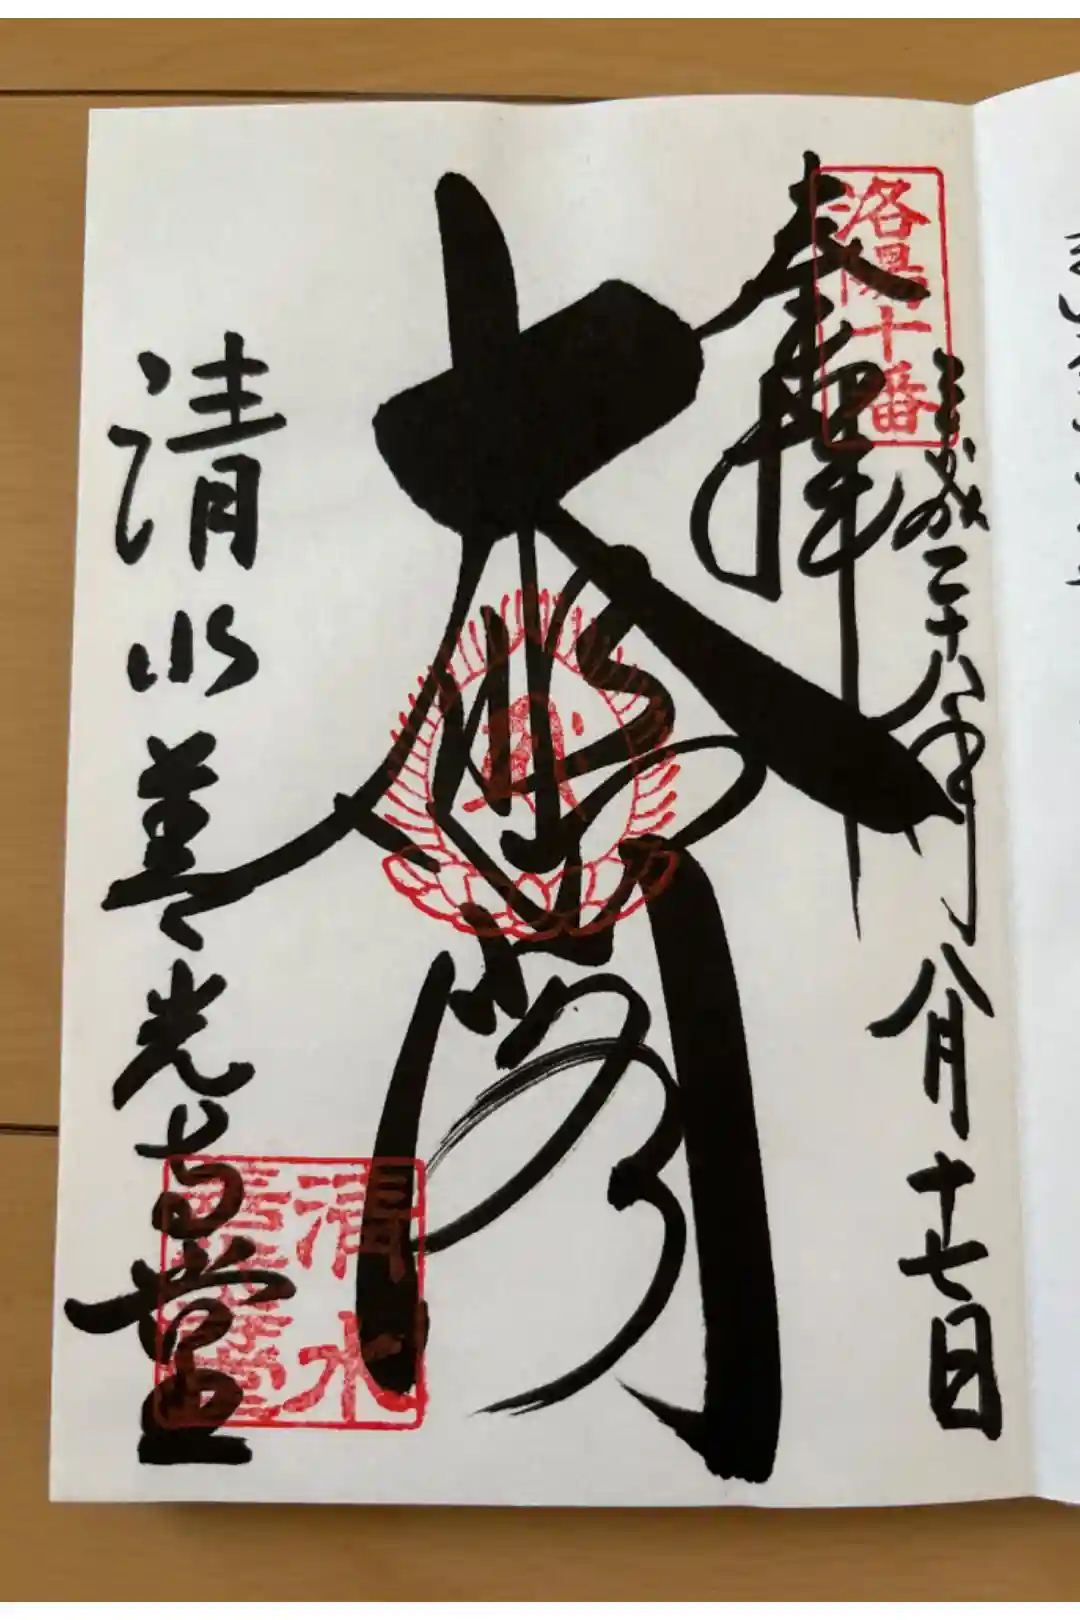 洛陽十番
奉拝
平成二十八年八月十七日
大悲閣
清水善光寺堂
清水